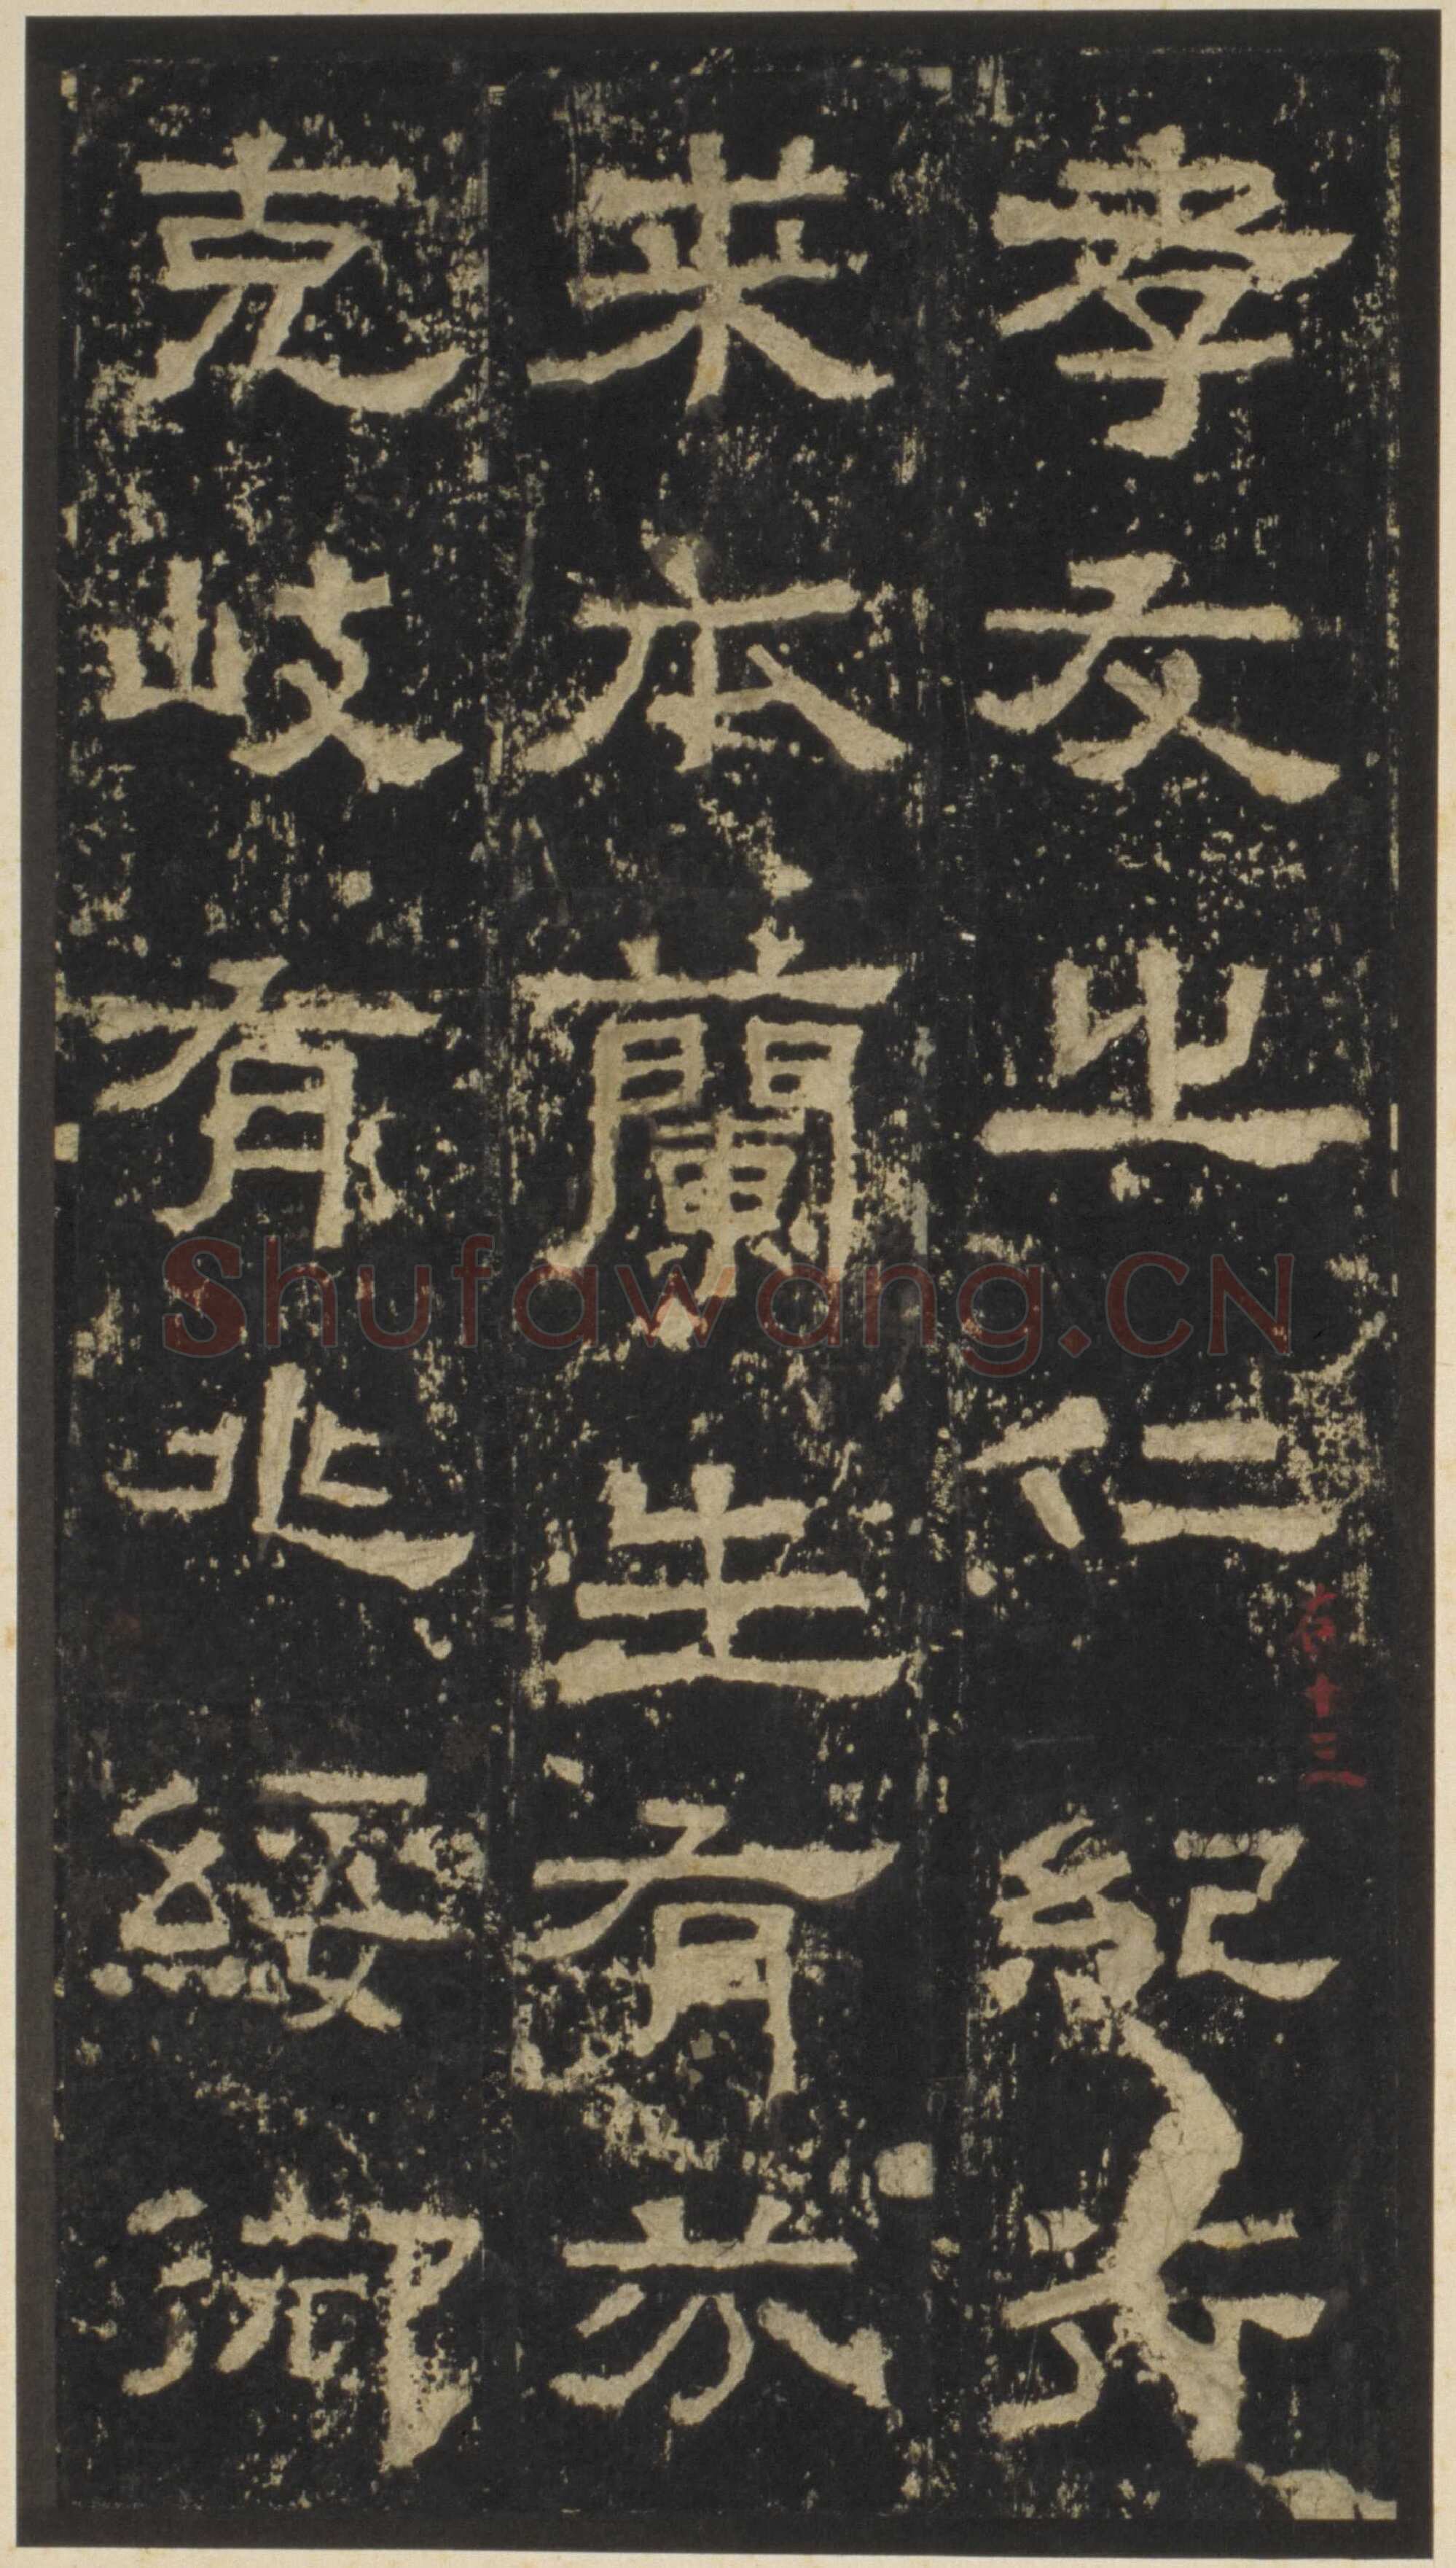 孝友之仁紀於
来本蘭生有芬
克岐有兆綏御
右十三
Shufawang.CN